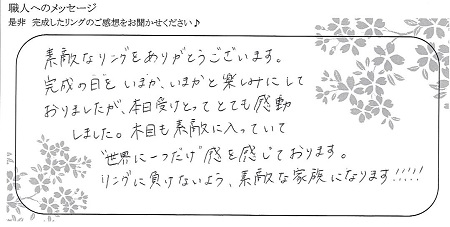 職人へのメッセージ
是非 完成したリングのご感想をお聞かせください♪
素敵なリングをありがとうございます。
完成の日をいまか、いまかと楽しみにして
おりましたが、本日受けとってとても感動
しました。木目も素敵に入っていて
"世界に一つだけ"感を感じております。
リングに負けないよう、素敵な家族になります!!!!!